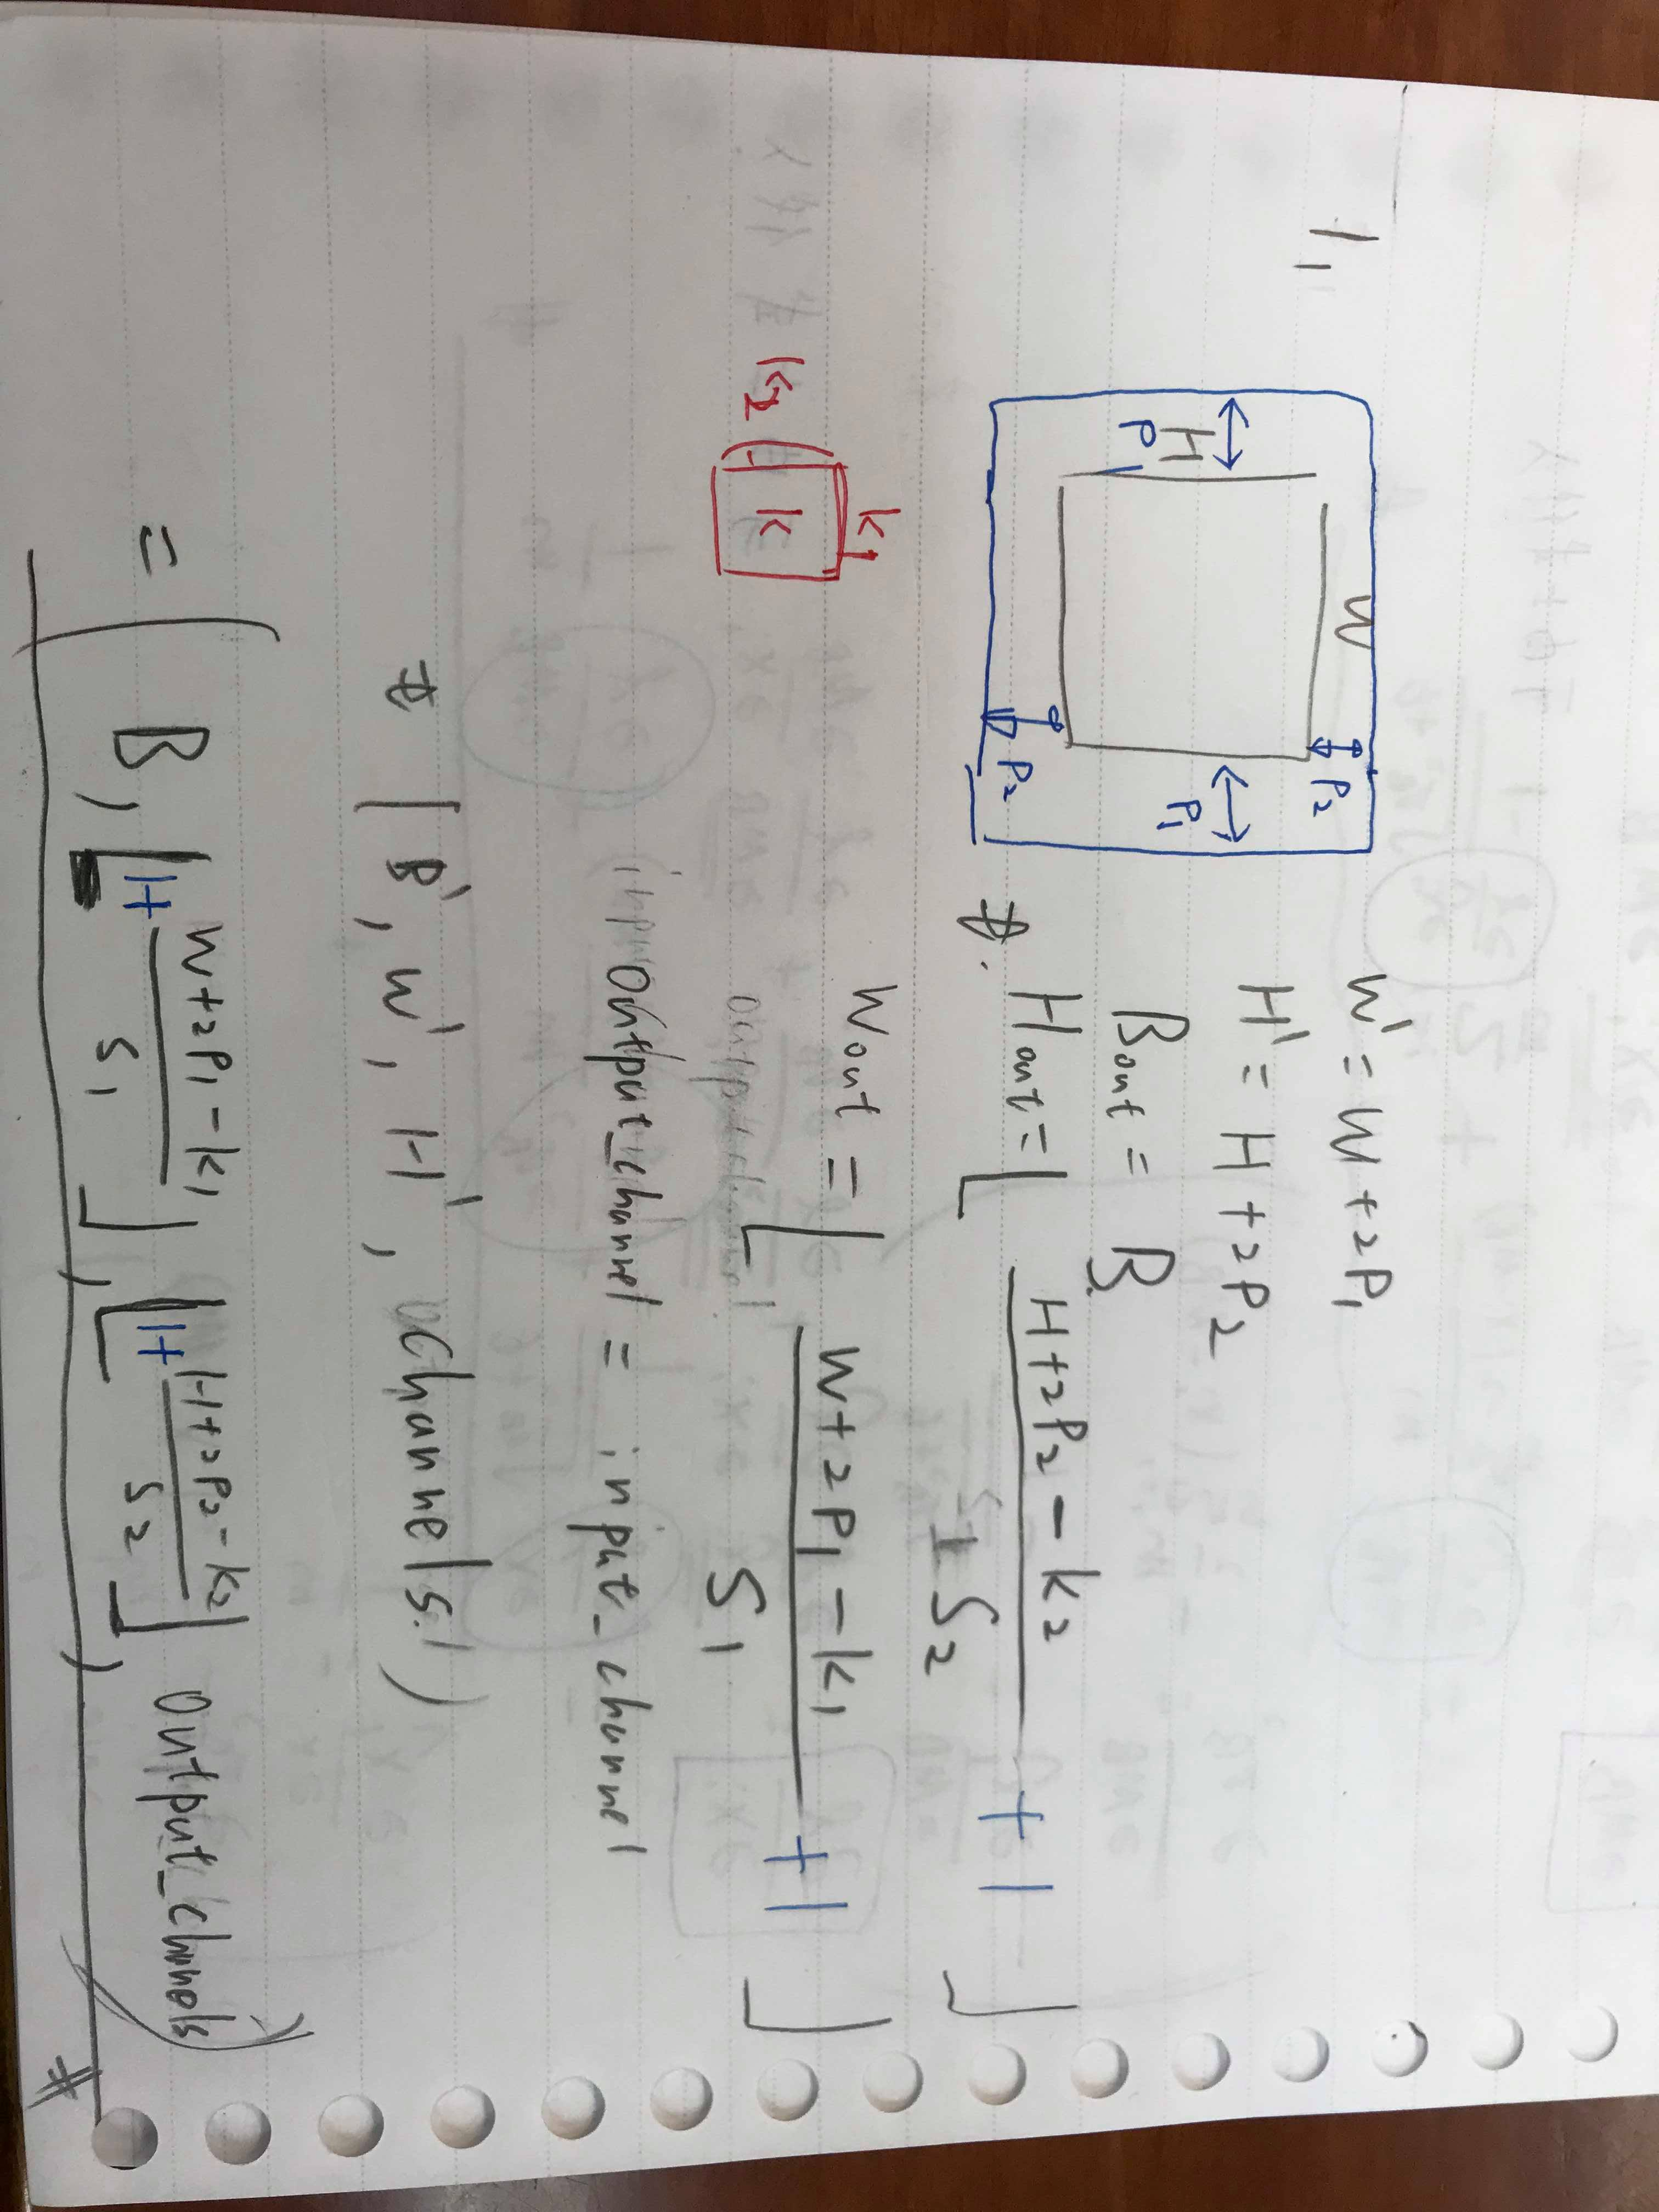 1,
W
H
P
P₁
P₂
P₂
W' = W + 2P₁
H' = H + 2P₂
Bout = B
#. Hout = ⌊ (H+2P₂-k₂)/S₂ + 1 ⌋
k₁
k₂
k
Wout = ⌊ (W+2P₁-k₁)/S₁ + 1 ⌋
Output_channel = input_channel
# (B', W', H', Channels')
= (B, ⌊1+ (W+2P₁-k₁)/S₁⌋, ⌊1+ (H+2P₂-k₂)/S₂⌋, output_channels)
#